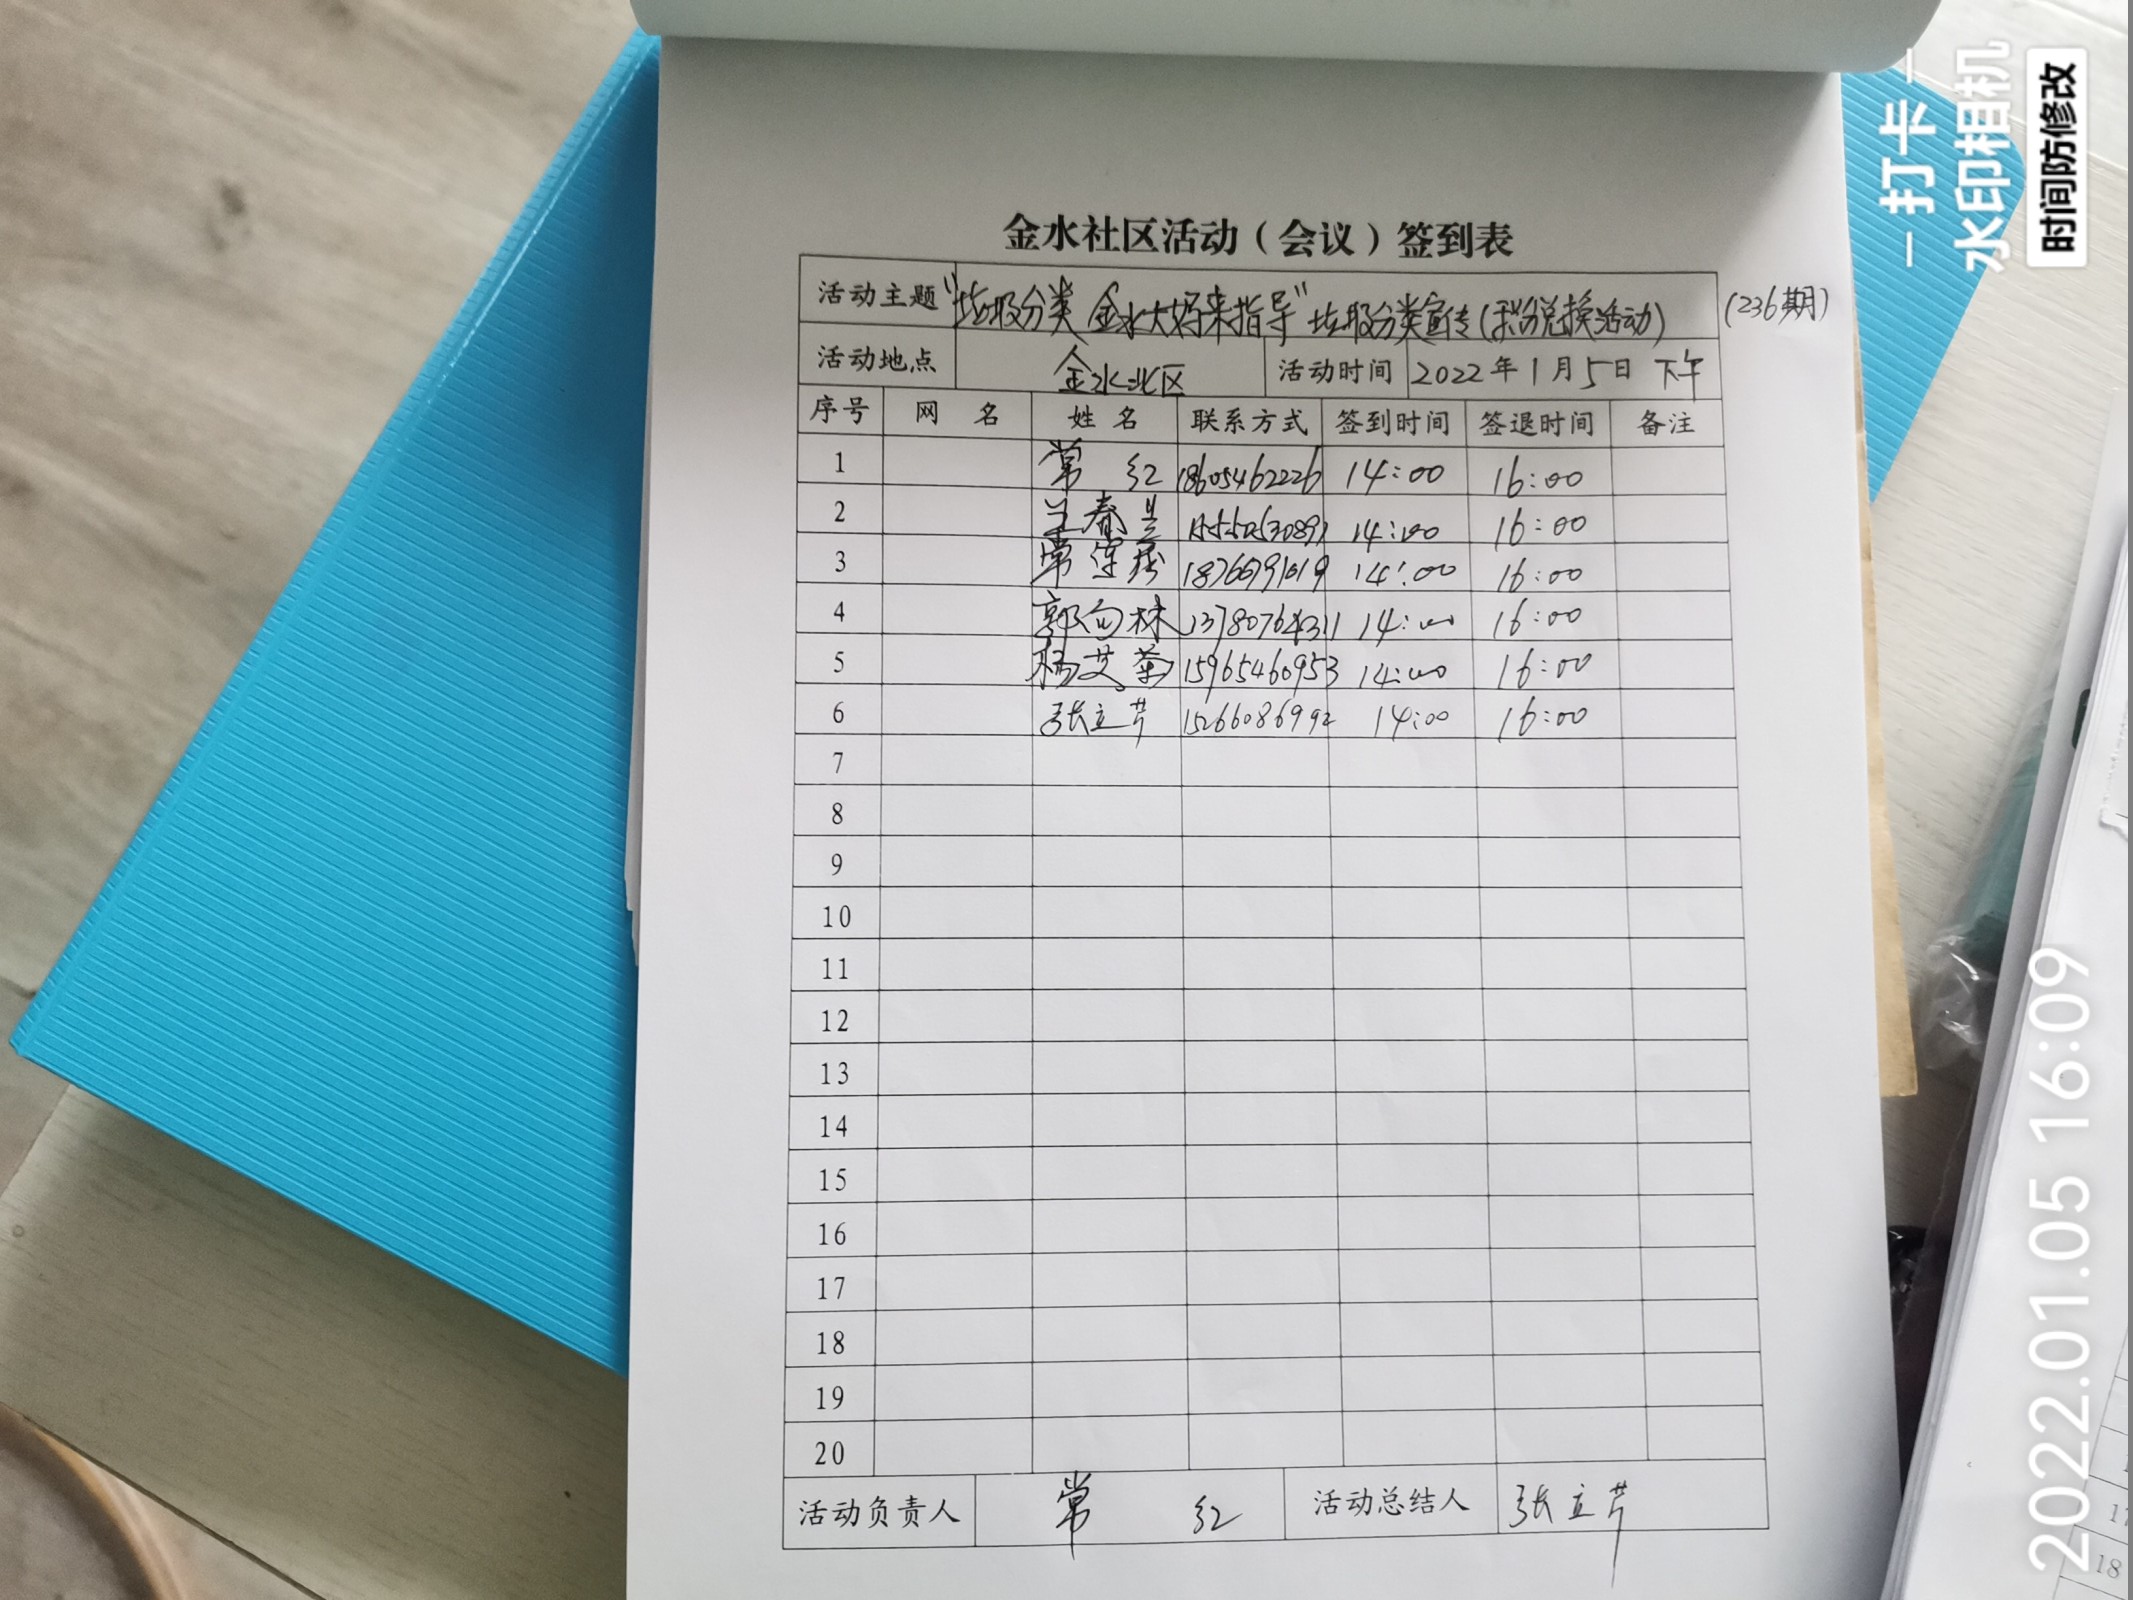 金水社区活动（会议）签到表
活动主题 "垃圾分类 金水大妈来指导"垃圾分类宣传(积分兑换活动) (236期)
活动地点 金水北区 活动时间 2022年1月5日 下午
序号 网 名 姓 名 联系方式 签到时间 签退时间 备注
1 常 红 18605462226 14:00 16:00
2 14:00 16:00
3 常 14:00 16:00
4 郭向林 14:00 16:00
5 杨艾 15965460953 14:00 16:00
6 张立芹 15266086992 14:00 16:00
7
8
9
10
11
12
13
14
15
16
17
18
19
20
活动负责人 常 红 活动总结人 张立芹
打卡
水印相机
时间防修改
2022.01.05 16:09
17
18